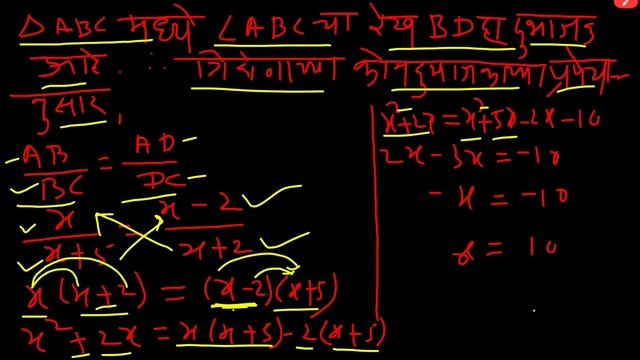 △ABC मध्ये ∠ABC चा रेख BD हा दुभाजक
आहे. ∴ त्रिकोणाच्या कोनदुभाजकाच्या प्रमेया-
नुसार,
AB/BC = AD/DC
x/(x+5) = (x-2)/(x+2)
x(x+2) = (x-2)(x+5)
x²+2x = x(x+5)-2(x+5)
x²+2x = x²+5x-2x-10
2x-3x = -10
-x = -10
x = 10